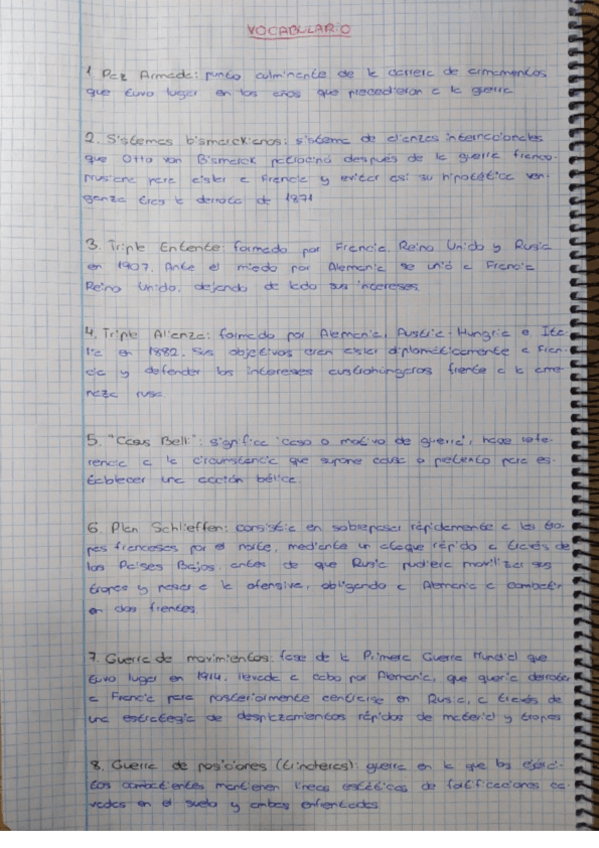 VOCABULARIO
1. Paz Armada: punto culminante de la carrera de armamentos
que tuvo lugar en los años que precedieron a la guerra
2. Sistemas bismarckianos: sistema de alianzas internacionales
que Otto von Bismarck patrocinó después de la guerra franco-
prusiana para aislar a Francia y evitar así su hipotética ven-
ganza tras la derrota de 1871
3. Triple Entente: formado por Francia, Reino Unido y Rusia
en 1907. Ante el miedo por Alemania se unió a Francia
Reino Unido, dejando de lado sus intereses
4. Triple Alianza: formado por Alemania, Austria-Hungría e Ita-
lia en 1882. Sus objetivos eran aislar diplomáticamente a Fran-
cia y defender los intereses austrohúngaros frente a la ame-
naza rusa.
5. "Casus Belli": significa 'caso o motivo de guerra', hace refe-
rencia a la circunstancia que supone causa o pretexto para es-
tablecer una acción bélica.
6. Plan Schlieffen: consistía en sobrepasar rápidamente a las tro-
pas francesas por el norte, mediante un ataque rápido a través de
los Países Bajos, antes de que Rusia pudiera movilizar sus
tropas y pasar a la ofensiva, obligando a Alemania a combatir
en dos frentes
7. Guerra de movimientos: fase de la Primera Guerra Mundial que
tuvo lugar en 1914, llevada a cabo por Alemania, que quería derrotar
a Francia para posteriormente centrarse en Rusia, a través de
una estrategia de desplazamientos rápidos de material y tropas
8. Guerra de posiciones (trincheras): guerra en la que los ejérci-
tos combatientes mantienen líneas estáticas de fortificaciones ca-
vadas en el suelo y ambas enfrentadas